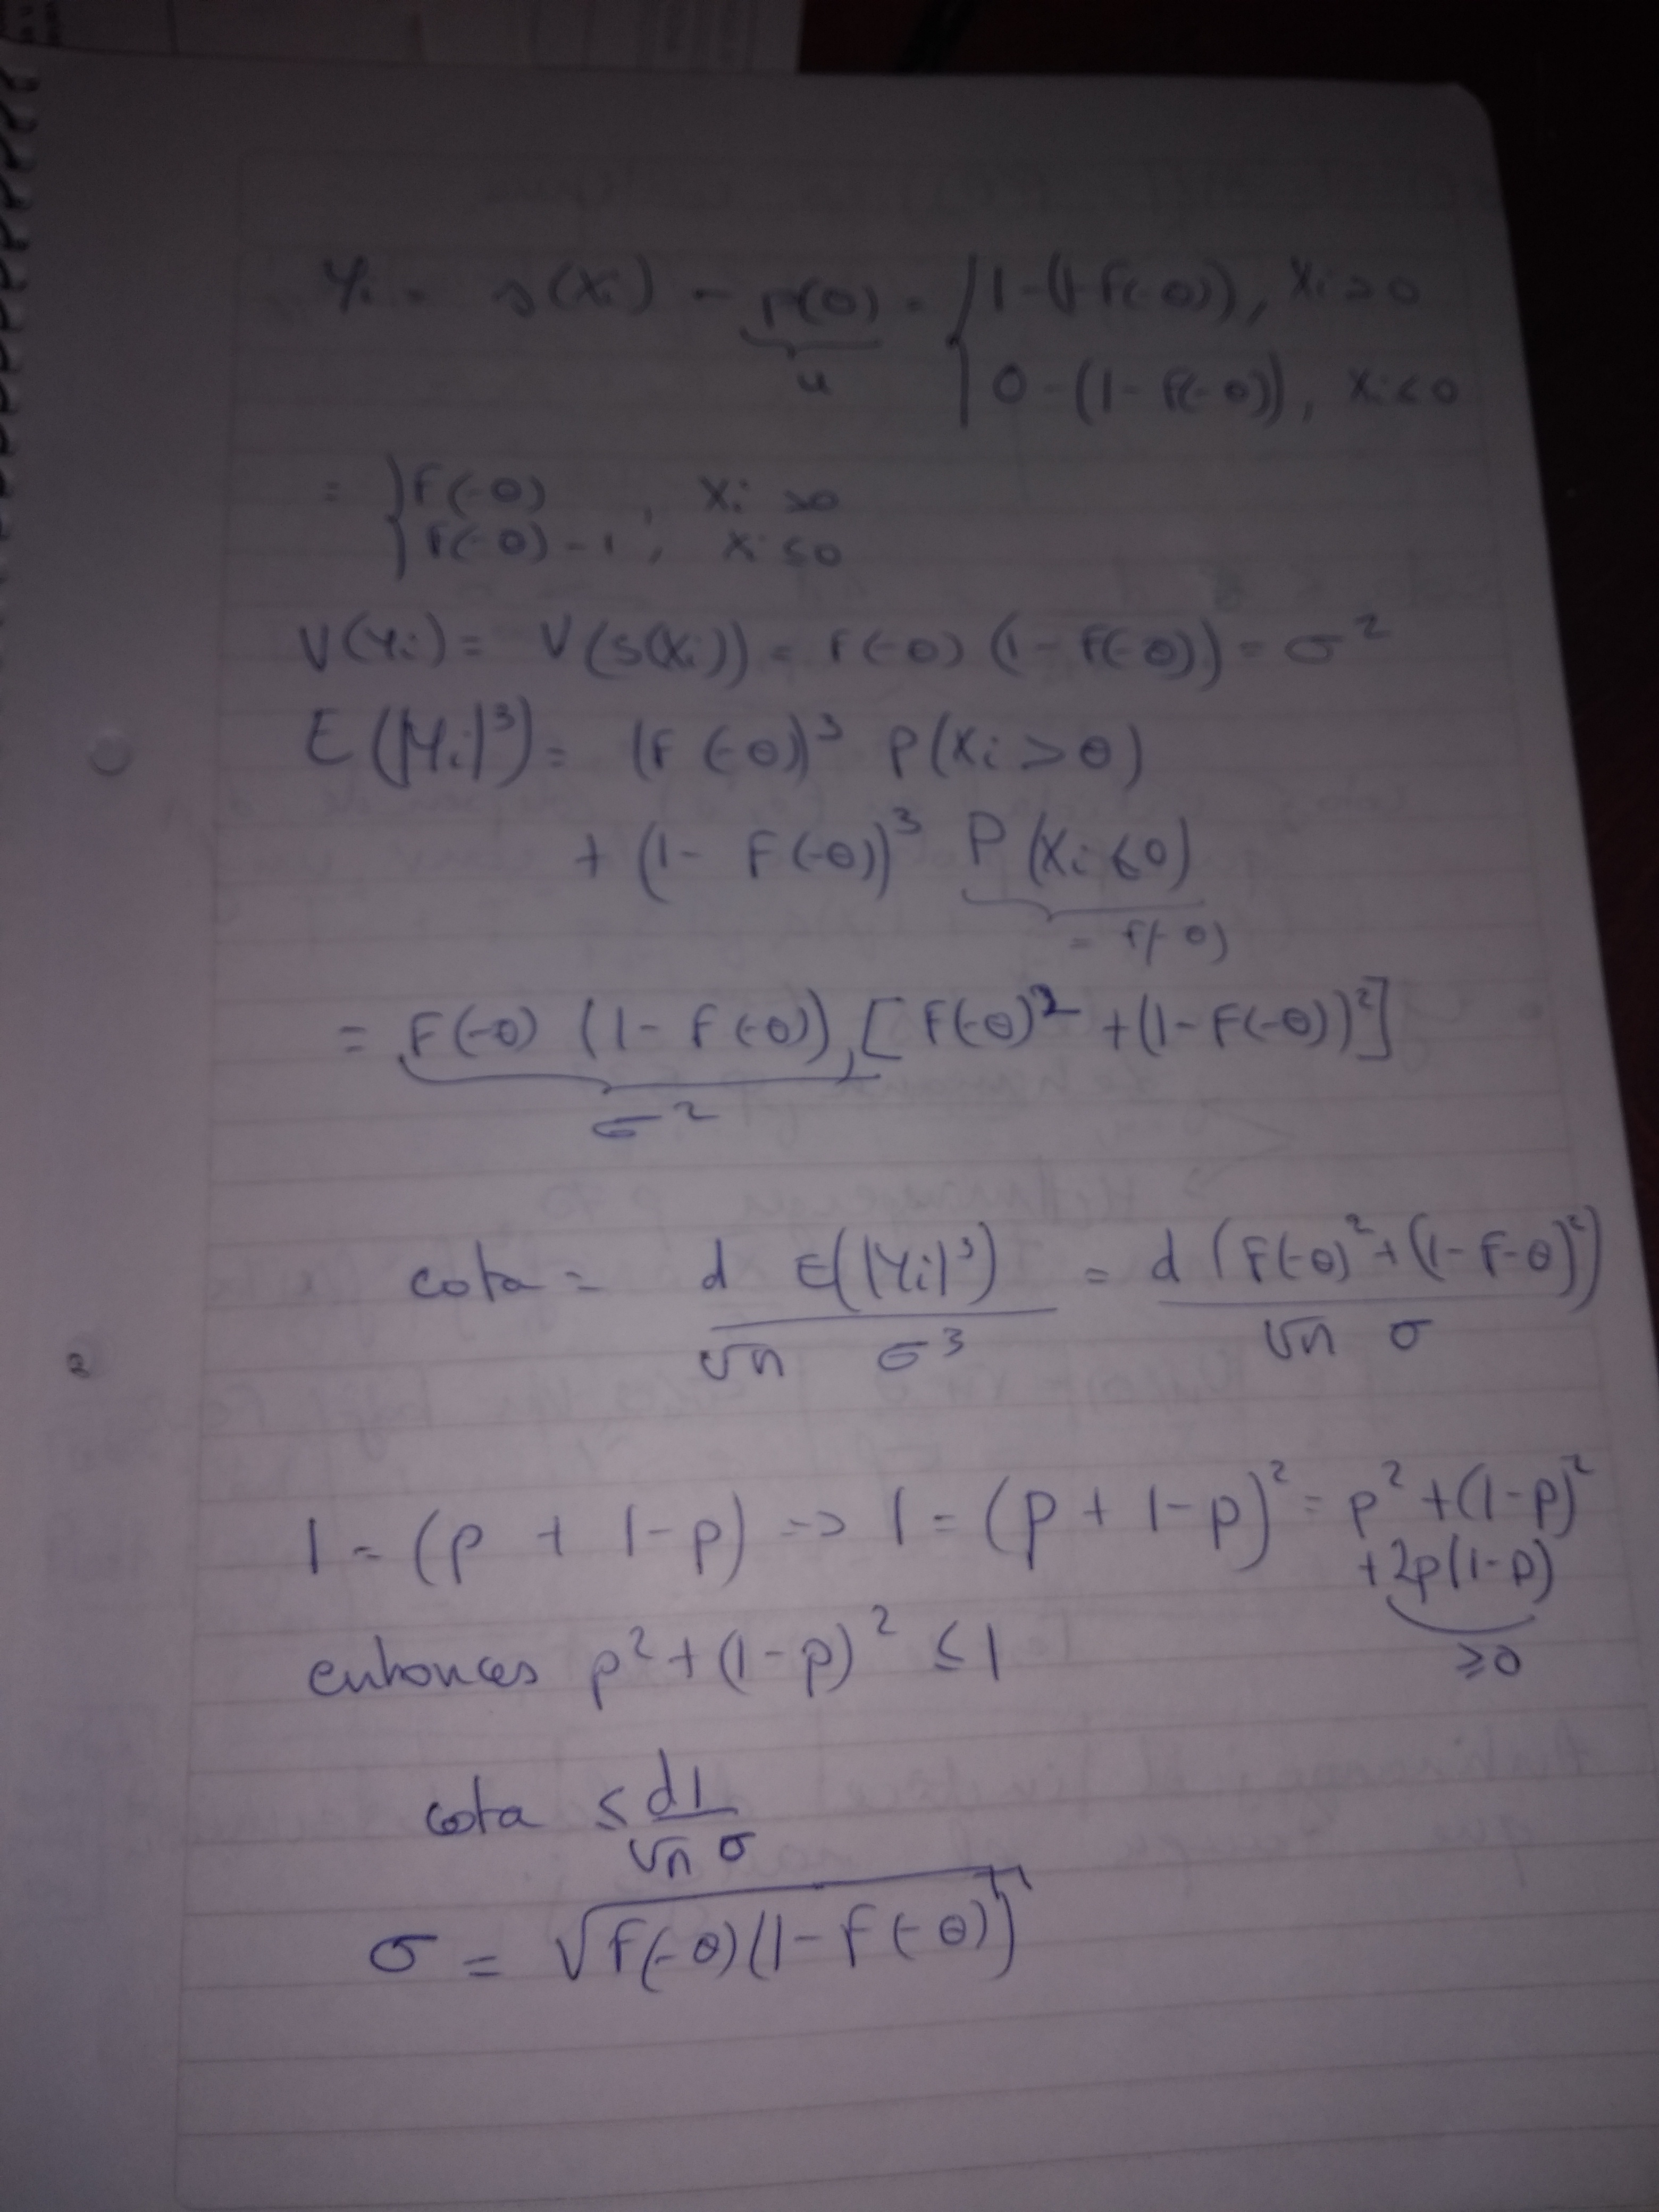 Yi = s(Xi) - μ(θ) = { 1-(1-F(-θ)), Xi>0
u
0-(1-F(-θ)), Xi<0
= { F(-θ) , Xi >0
F(-θ)-1, Xi ≤0
V(Yi) = V(s(Xi)) = F(-θ) (1-F(-θ)) = σ²
E(|Yi|³) = (F(-θ))³ P(Xi>0)
+ (1- F(-θ))³ P(Xi≤0)
= F(-θ)
= F(-θ) (1- F(-θ)) [F(-θ)² + (1-F(-θ))²]
σ²
cota = d E(|Yi|³) / √n σ³ = d (F(-θ)²+(1-F-θ)²) / √n σ
1 = (p + 1-p) => 1 = (p + 1-p)² = p² +(1-p)²
+2p(1-p)
≥0
entonces p²+(1-p)² ≤1
cota ≤ d1 / √n σ
σ = √F(-θ)(1-F(-θ))